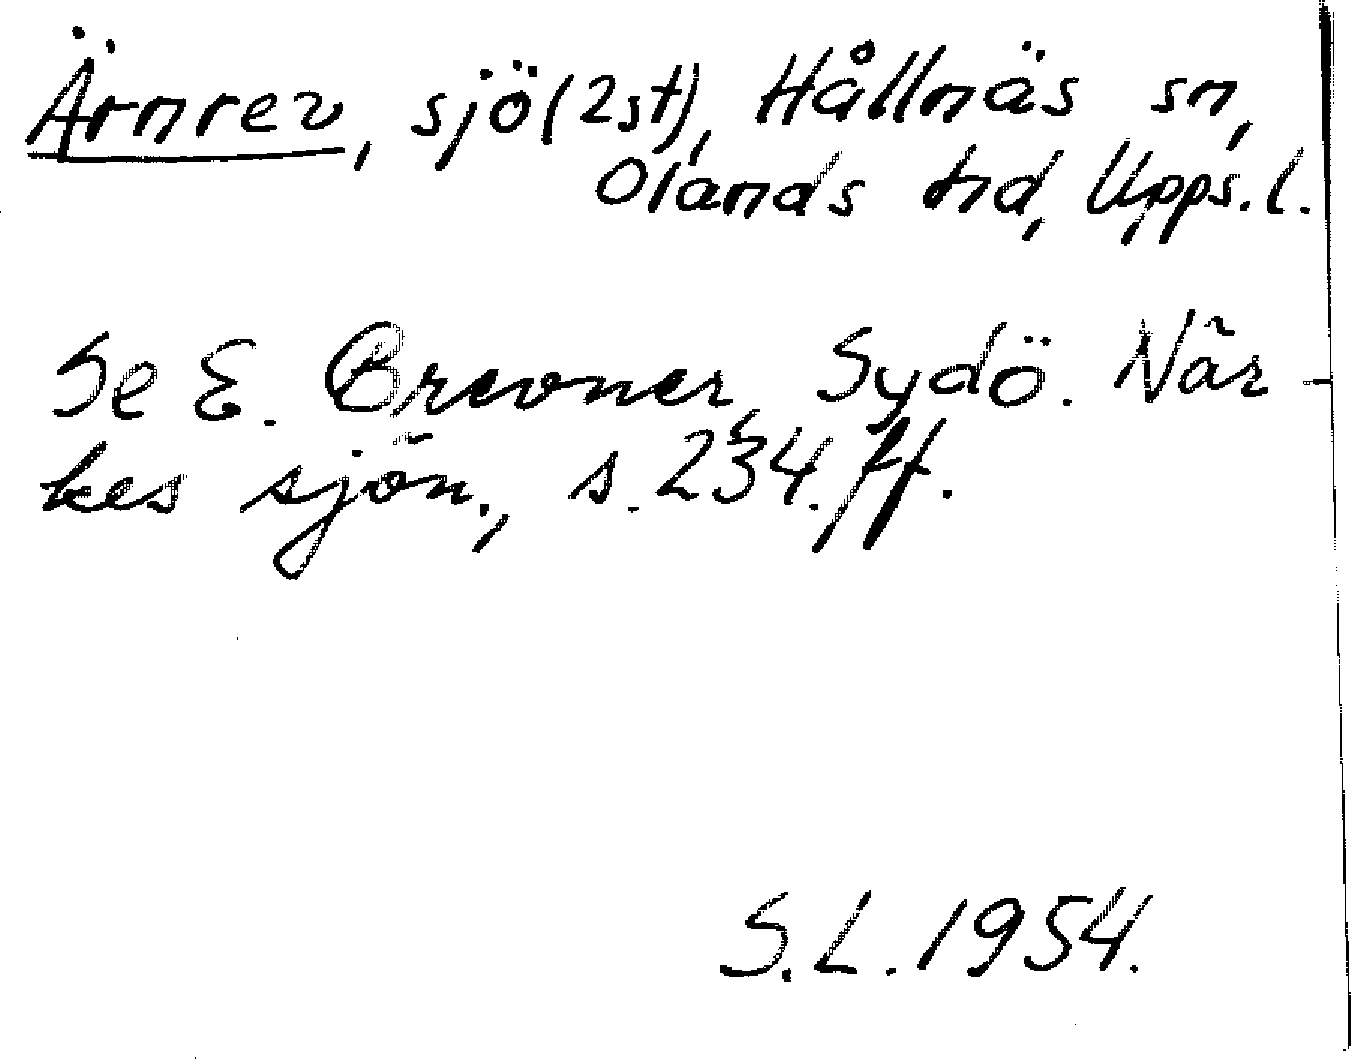 Ärnrev, sjö (2st), Hållnäs sn,
Olands hd, Upps. l.
Se E. Brevner, Sydö. När-
kes sjön., s. 234. ff.
S.L. 1954.